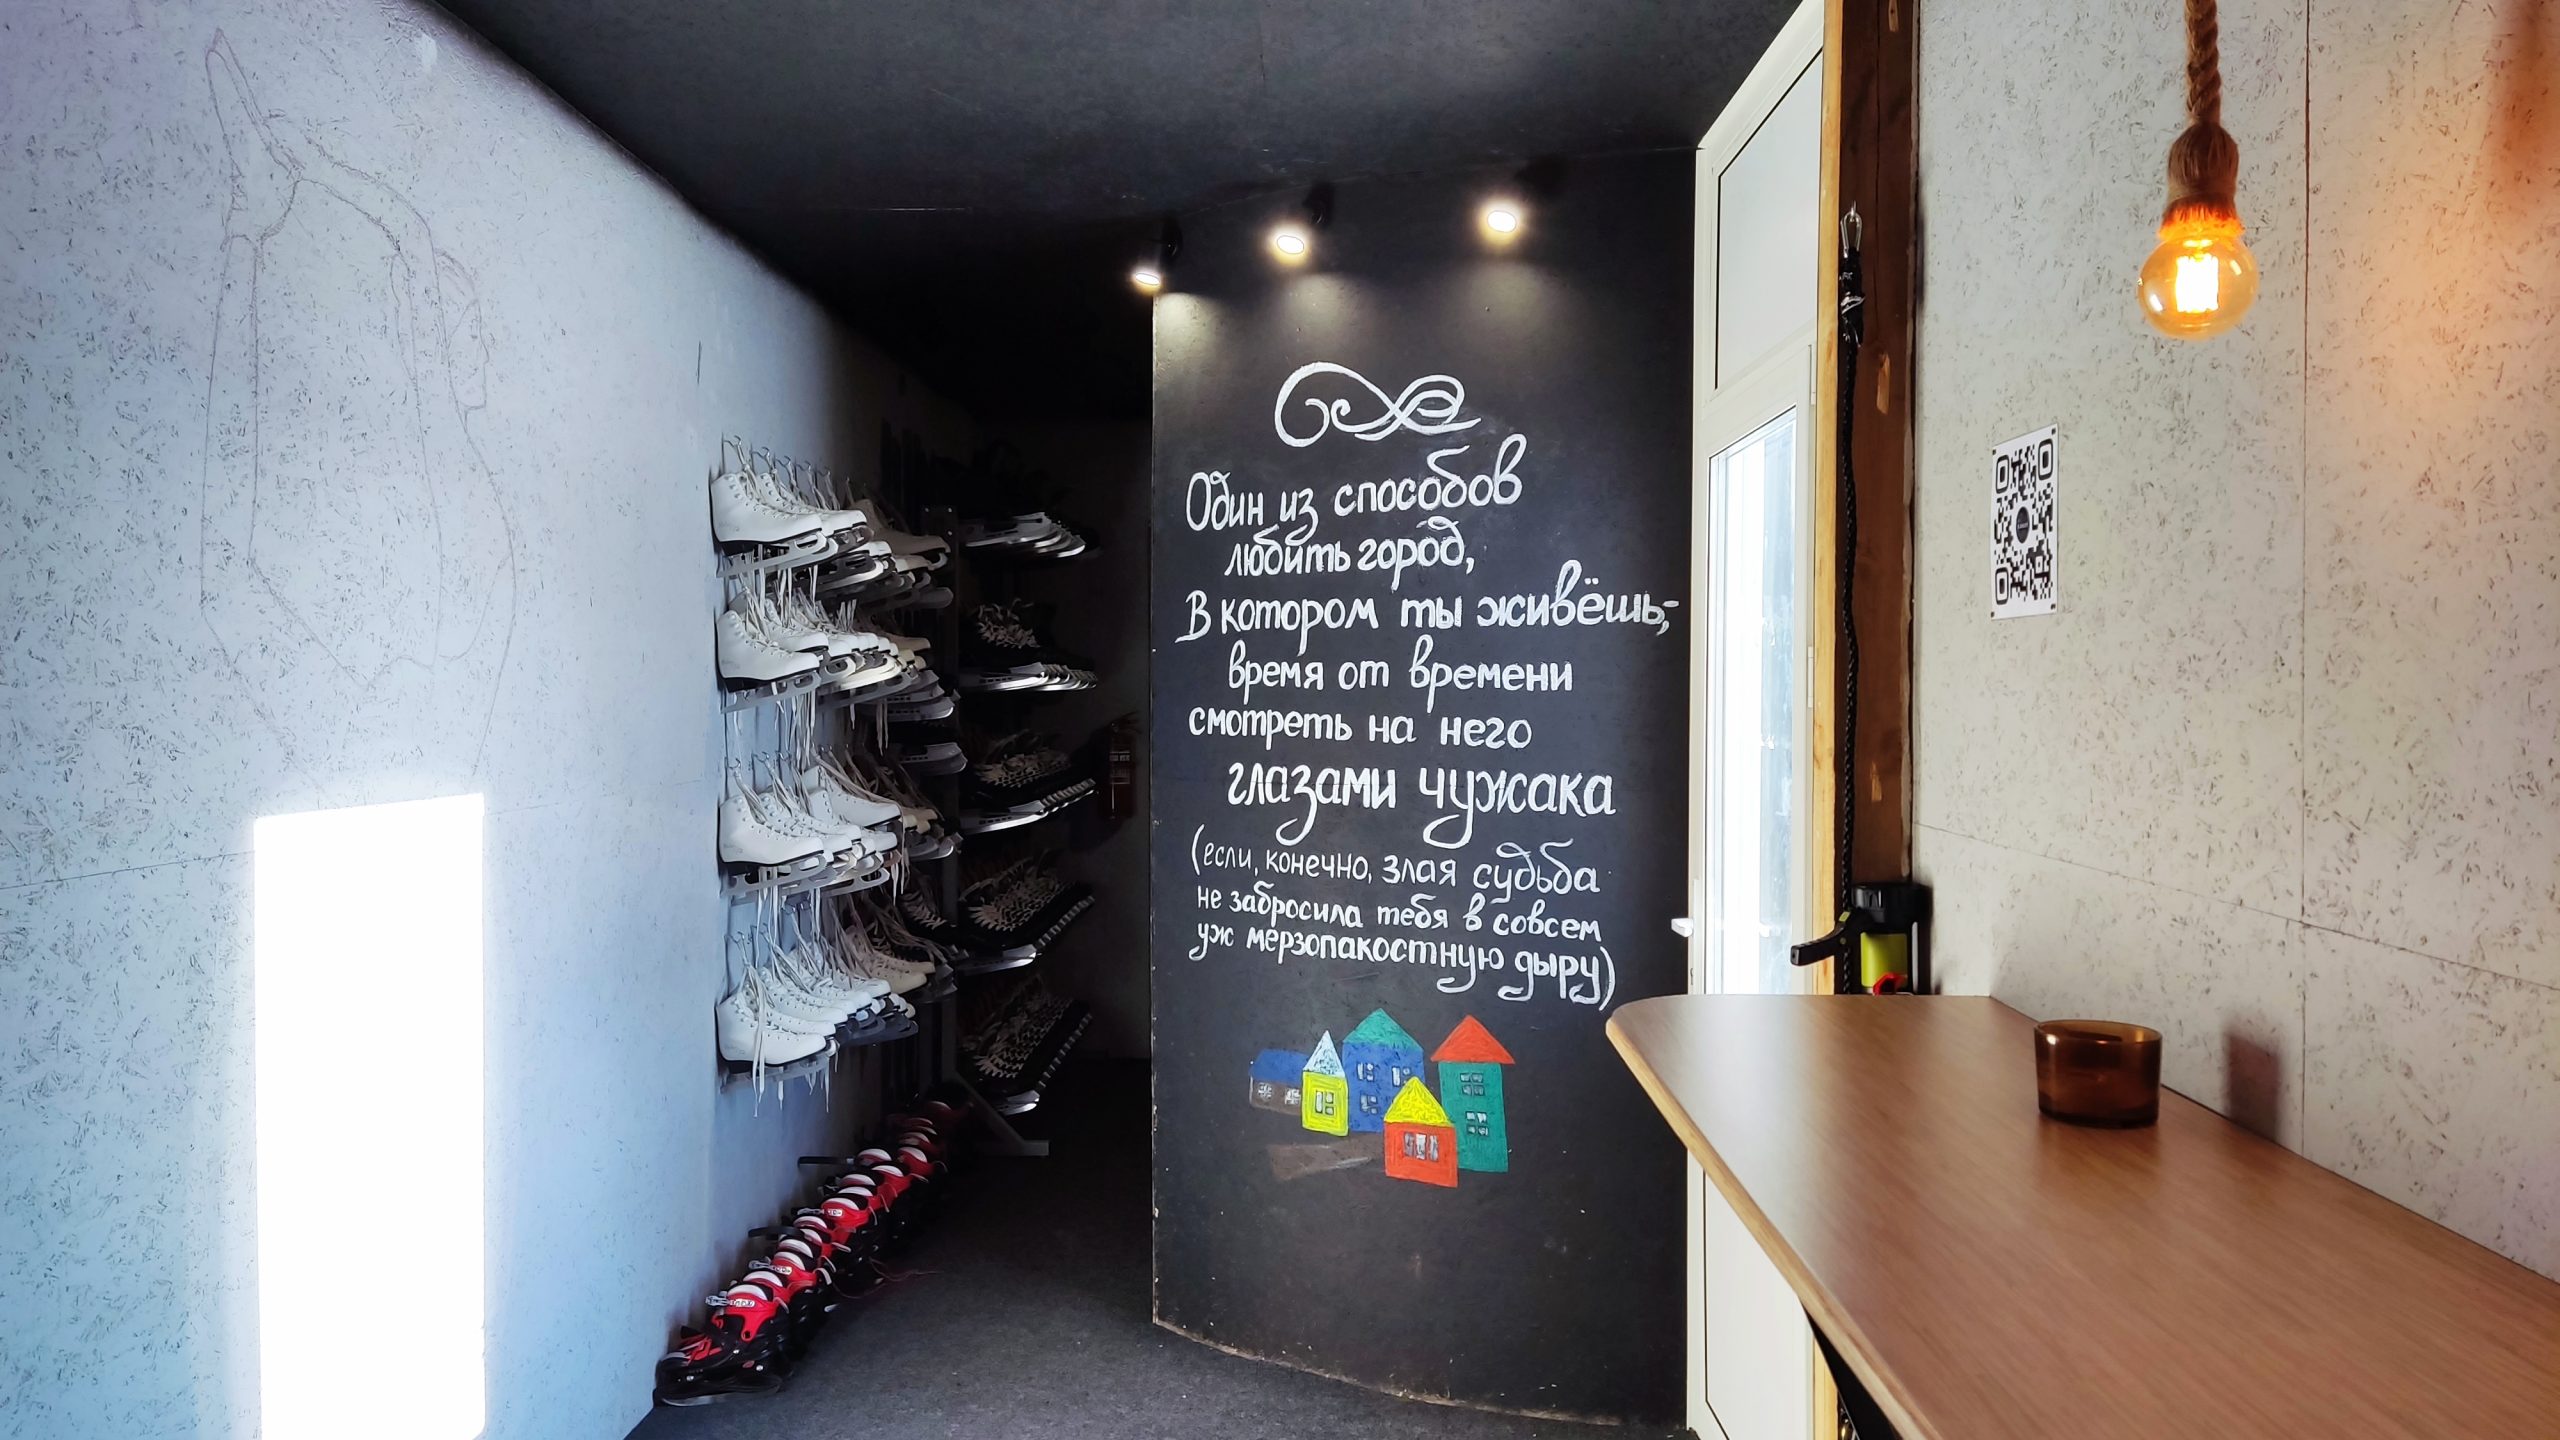 Один из способов
любить город,
В котором ты живёшь,-
время от времени
смотреть на него
глазами чужака
(если, конечно, злая судьба
не забросила тебя в совсем
уж мерзопакостную дыру)